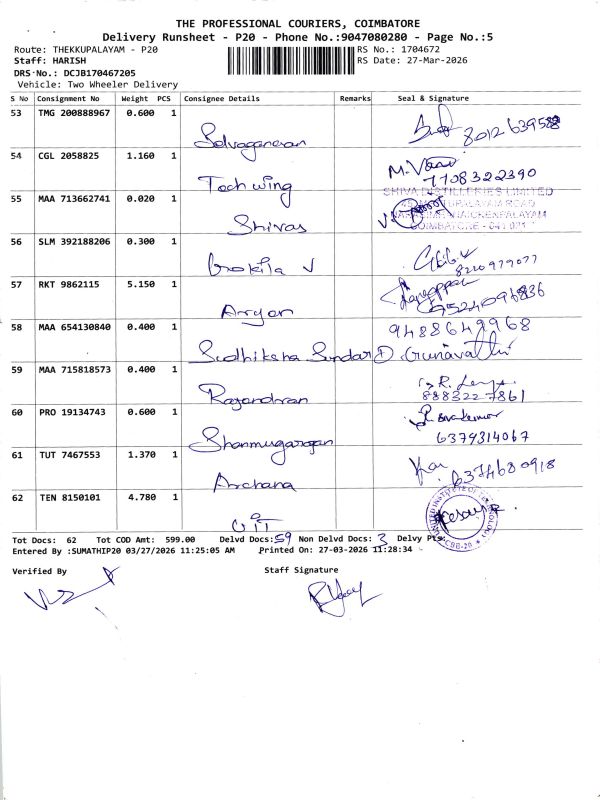 THE PROFESSIONAL COURIERS, COIMBATORE
Delivery Runsheet - P20 - Phone No.:9047080280 - Page No.:5
Route: THEKKUPALAYAM - P20 RS No.: 1704672
Staff: HARISH RS Date: 27-Mar-2026
DRS No.: DCJB170467205
Vehicle: Two Wheeler Delivery
S No Consignment No Weight PCS Consignee Details Remarks Seal & Signature
53 TMG 200888967 0.600 1
Selvaganesan 8012639588
54 CGL 2058825 1.160 1
Tech wing 7708322390
55 MAA 713662741 0.020 1 SHIVA DISTILLERIES LIMITED
Shivas COIMBATORE - 641 031
56 SLM 392188206 0.300 1
Gokila V 8220979077
57 RKT 9862115 5.150 1
Aryan 9524096836
58 MAA 654130840 0.400 1 9488649968
Sudhiksha Sundar D. Gunavathi
59 MAA 715818573 0.400 1
Rajandran 8883227861
60 PRO 19134743 0.600 1
Shanmugarajan 6379314067
61 TUT 7467553 1.370 1
Archana 6374680918
62 TEN 8150101 4.780 1
UIT
Tot Docs: 62 Tot COD Amt: 599.00 Delvd Docs: 59 Non Delvd Docs: 3 Delvy Pts:
Entered By :SUMATHIP20 03/27/2026 11:25:05 AM Printed On: 27-03-2026 11:28:34
Verified By Staff Signature